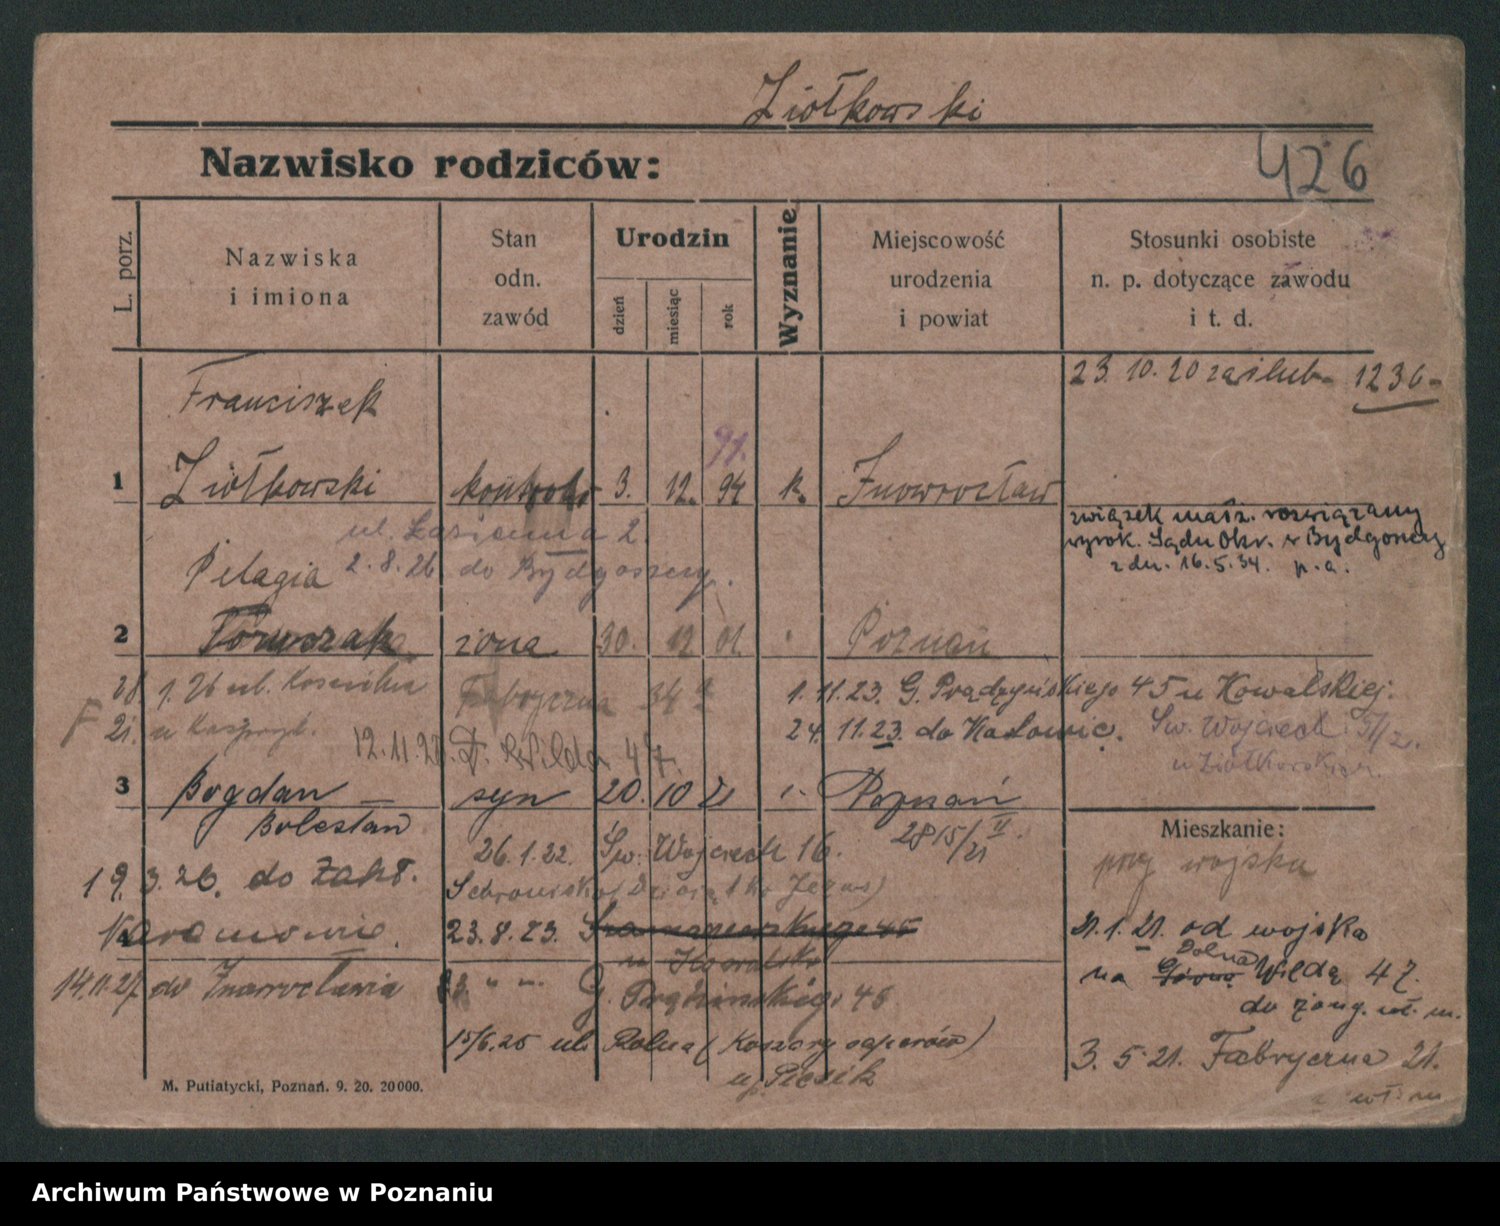 Ziółkowski
Nazwisko rodziców:
426
L. porz.
Nazwiska
i imiona
Stan
odn.
zawód
Urodzin
dzień
miesiąc
rok
Wyznanie
Miejscowość
urodzenia
i powiat
Stosunki osobiste
n. p. dotyczące zawodu
i t. d.
23. 10. 20 zaślub. 1236-
Franciszek
91.
1 Ziółkowski 3. 12. 94 k. Inowrocław
związek małż. rozwiązany
wyrok. Sądu Okr. w Bydgoszczy
z dn. 16.5.34. p.a.
ul. Łazienna 2.
Pelagia 2.8.26 do Bydgoszczy.
2 żona 30. 12 01. Poznań
28. 1. 26 ul. Fabryczna 34
1. 11. 23. G. Prądzyńskiego 45 u Kowalskiej.
21. u
24. 11. 23. do Katowic. Św. Wojciech
12.11.27. D. Wilda 47.
u Ziółkowskich.
3 Bogdan syn 20. 10 21 Poznań
Bolesław
2815/21 II.
Mieszkanie:
26. 1. 22. Św. Wojciech 16.
przy wojsku
19. 3. 26. do Zakł.
Schronisko (Dzieciątka Jezus)
4
23. 8. 23. 45
u Kowalsk
21. 1. 21. od wojska
Dolna
na Górna Wildą 47.
14.11.27 do Inowrocławia
G. Prądzinskiego 45
do
15/6.25 ul. Rolna (Koszary saperów)
u Piesik
3. 5. 21. Fabryczna 21.
M. Putiatycki, Poznań. 9. 20. 20000.
Archiwum Państwowe w Poznaniu